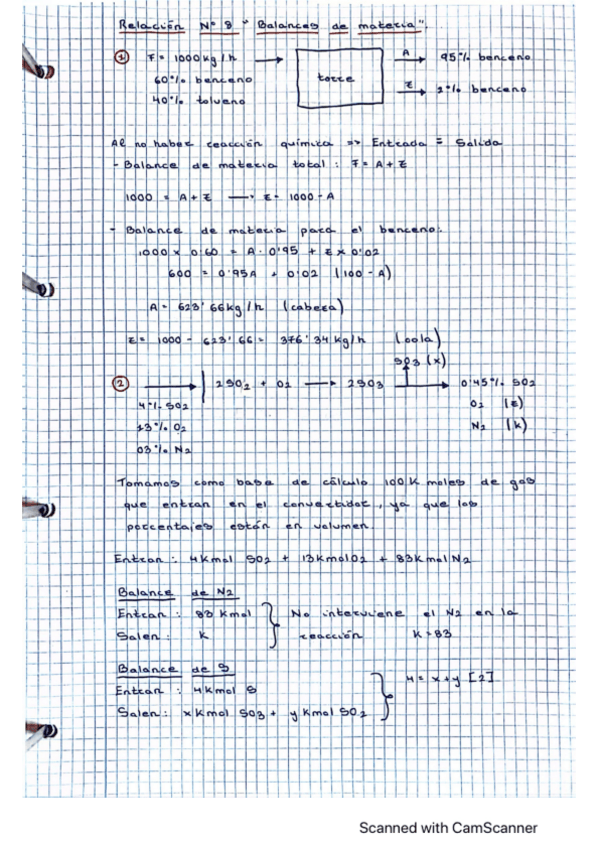 Relación Nº 8 "Balances de materia".
① F= 1000 kg/h
60% benceno
40% tolueno
torre
A 95% benceno
E 2% benceno
Al no haber reacción química => Entrada = Salida
- Balance de materia total : F = A + E
1000 = A + E → E = 1000 - A
- Balance de materia para el benceno:
1000 x 0'60 = A · 0'95 + E x 0'02
600 = 0'95A + 0'02 (100 - A)
A = 623'66 kg/h (cabeza)
E = 1000 - 623'66 = 376'34 kg/h (cola)
SO3 (x)
② 2SO2 + O2 → 2SO3
0'45% SO2
4% SO2
O2 (E)
13% O2
N2 (k)
83% N2
Tomamos como base de cálculo 100 K moles de gas
que entran en el convertidor, ya que los
porcentajes están en volumen.
Entran : 4 kmol SO2 + 13 kmol O2 + 83 kmol N2
Balance de N2
Entran : 83 kmol
Salen : k
No interviene el N2 en la
reacción k = 83
Balance de S
Entran : 4 kmol S
Salen : x kmol SO3 + y kmol SO2
4 = x + y [2]
Scanned with CamScanner